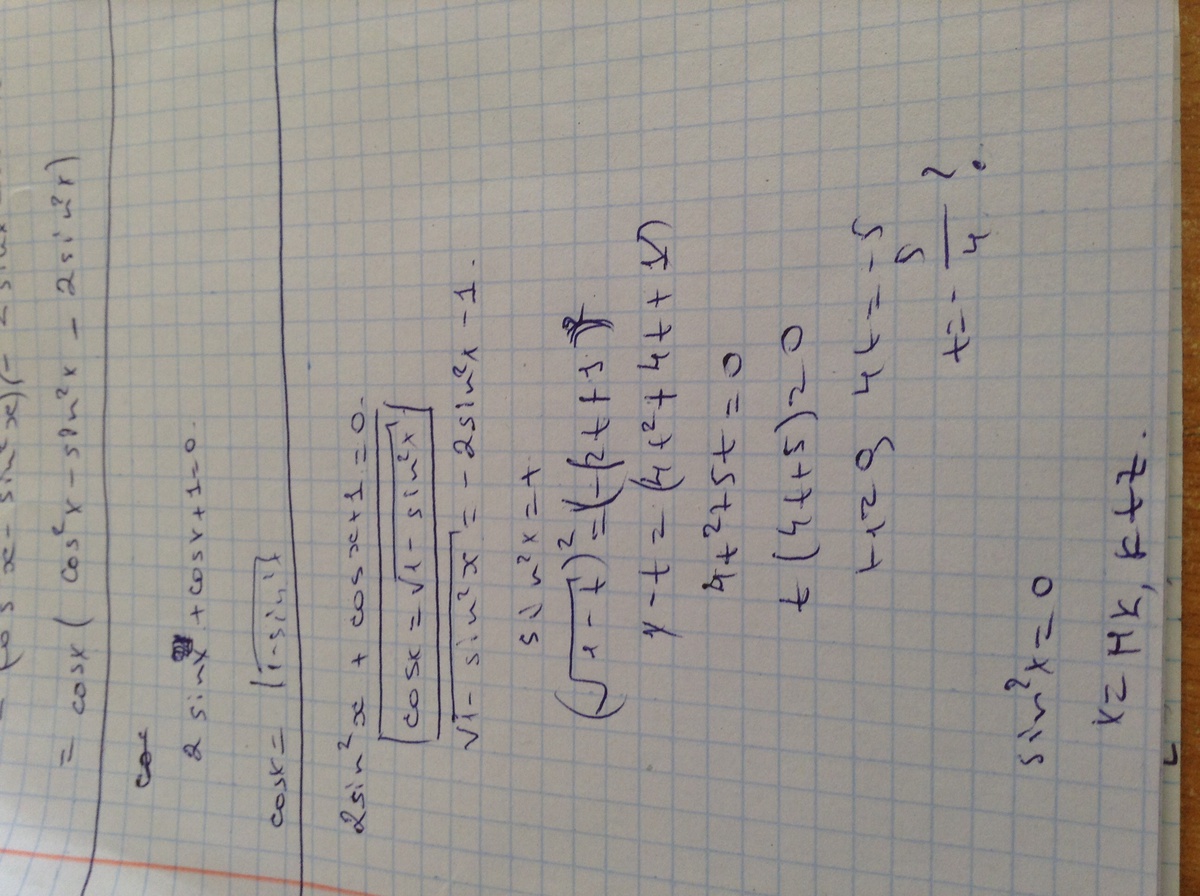 = cosx ( cos²x - sin²x - 2sin²x)
2 sinx + cosx + 1 = 0.
cosx = √1-sin²x
2sin²x + cosx + 1 = 0.
cosx = √1 - sin²x
√1 - sin²x = - 2sin²x - 1.
sin²x = t
(√1 - t)² = (-(2t + 1))²
1 - t = (4t² + 4t + 1)
4t² + 5t = 0
t (4t + 5) = 0
t = 0 4t = -5
t = - 5/4 ?
sin²x = 0
x = πk, k ∈ z.